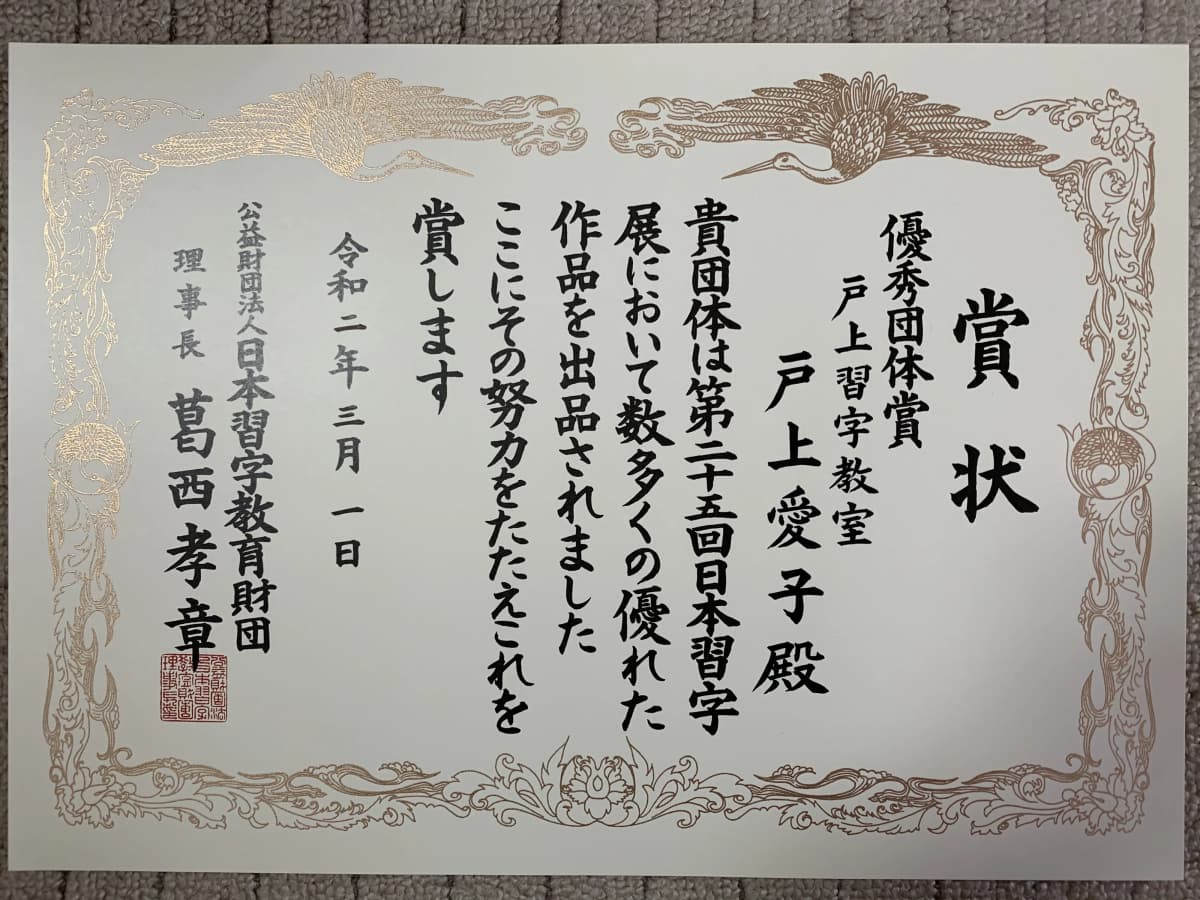 賞状
優秀団体賞
戸上習字教室
戸上愛子殿
貴団体は第二十五回日本習字
展において数多くの優れた
作品を出品されました
ここにその努力をたたえこれを
賞します
令和二年三月一日
公益財団法人日本習字教育財団
理事長 葛西孝章